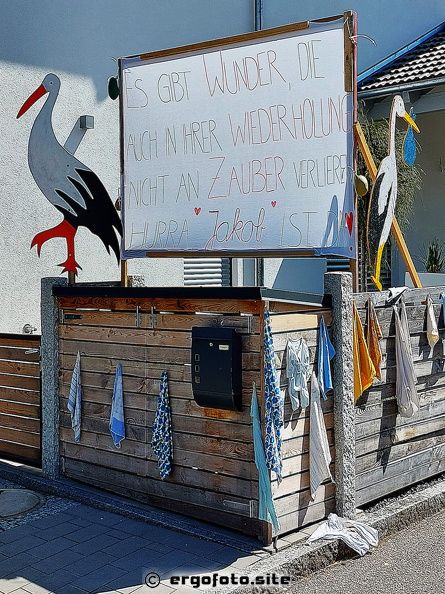 ES GIBT WUNDER, DIE
AUCH IN IHRER WIEDERHOLUNG
NICHT AN ZAUBER VERLIEREN
HURRA "Jakob" IST
© ergofoto.site